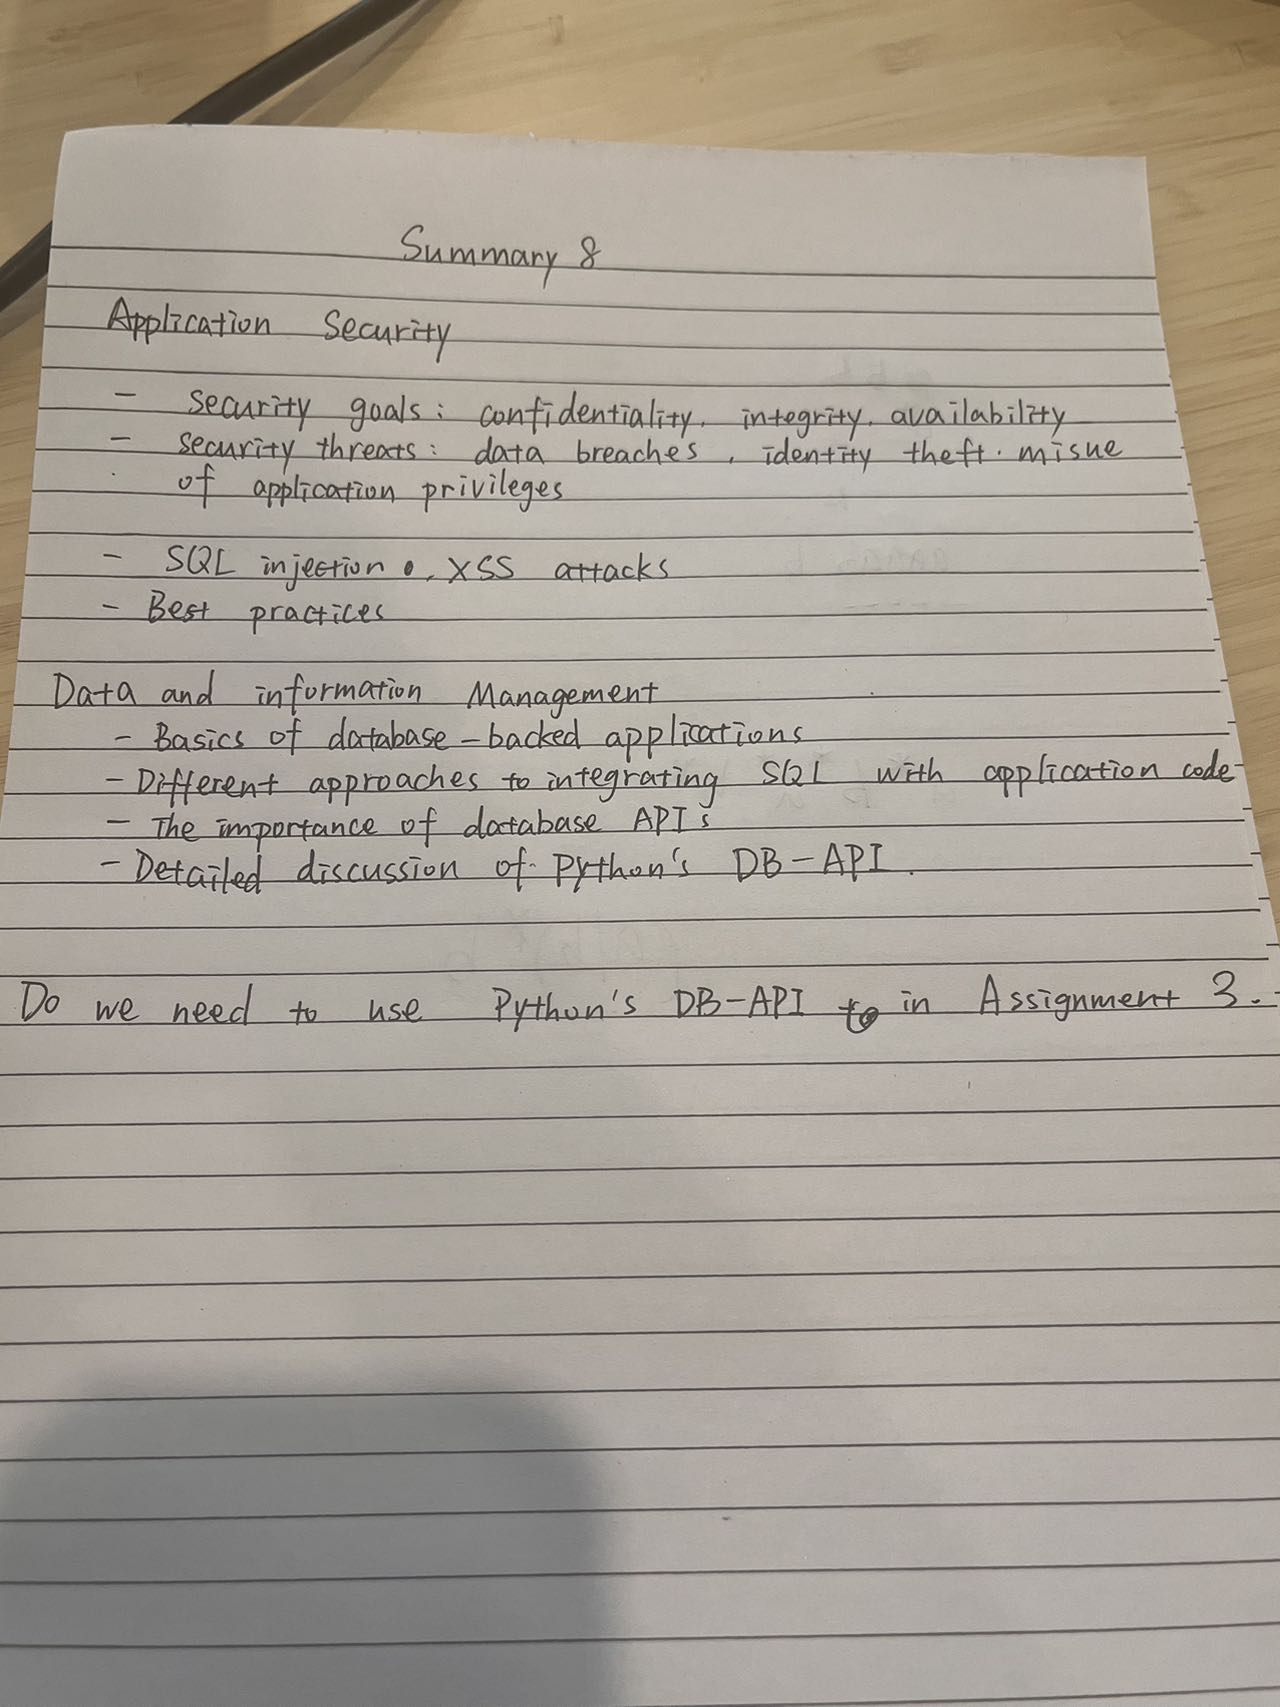 Summary 8
Application Security
- security goals: confidentiality, integrity, availability
- security threats: data breaches, identity theft, misue
of application privileges
- SQL injection, XSS attacks
- Best practices
Data and information Management
- Basics of database-backed applications
- Different approaches to integrating SQL with application code
- The importance of database APIs
- Detailed discussion of Python's DB-API.
Do we need to use Python's DB-API to in Assignment 3.